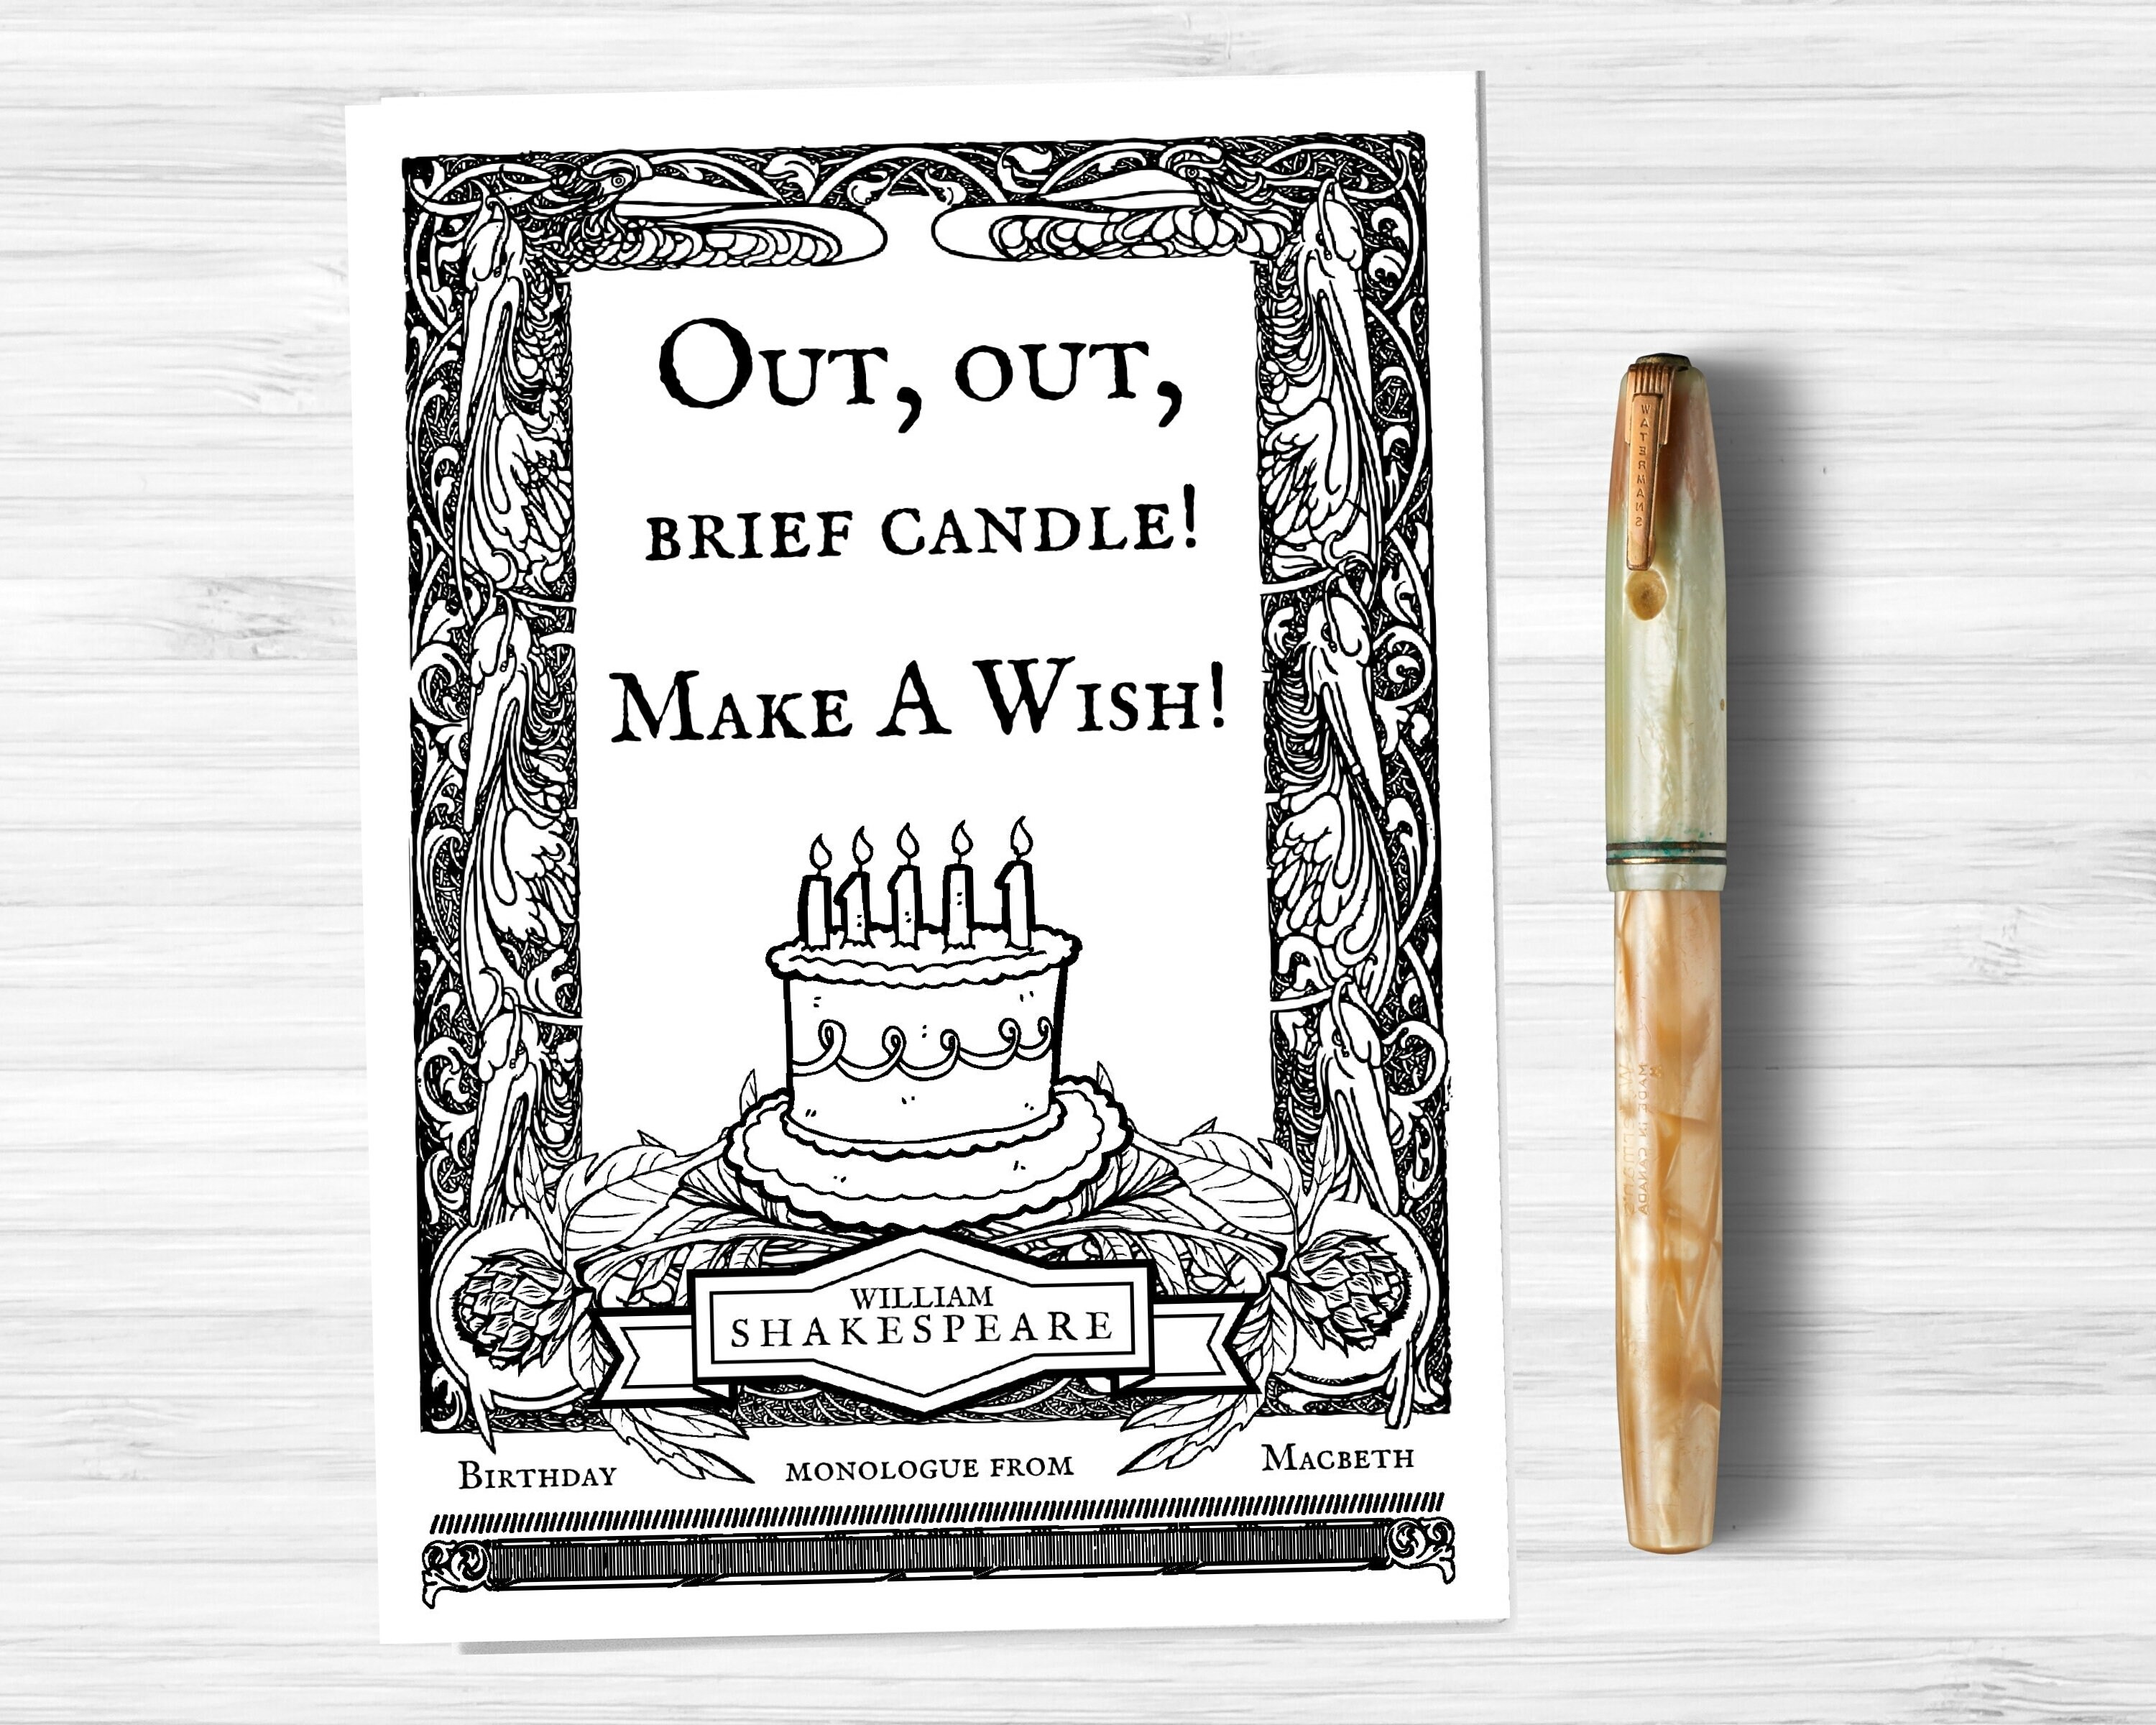 Out, out,
brief candle!
Make A Wish!
WILLIAM
SHAKESPEARE
Birthday monologue from Macbeth
WATERMANS
MADE IN CANADA